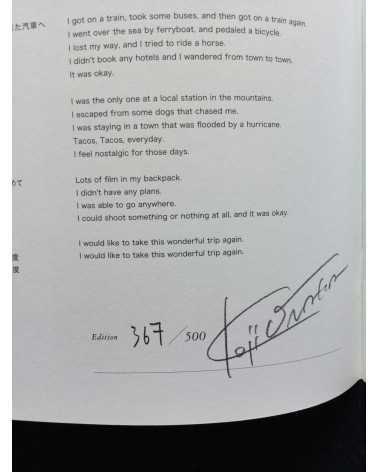 た汽車へ
I got on a train, took some buses, and then got on a train again.
I went over the sea by ferryboat, and pedaled a bicycle.
I lost my way, and I tried to ride a horse.
I didn't book any hotels and I wandered from town to town.
It was okay.
I was the only one at a local station in the mountains.
I escaped from some dogs that chased me.
I was staying in a town that was flooded by a hurricane.
Tacos, Tacos, everyday.
I feel nostalgic for those days.
めて
Lots of film in my backpack.
I didn't have any plans.
I was able to go anywhere.
I could shoot something or nothing at all, and it was okay.
度
I would like to take this wonderful trip again.
度
I would like to take this wonderful trip again.
Edition 367 / 500 Koji Onaka